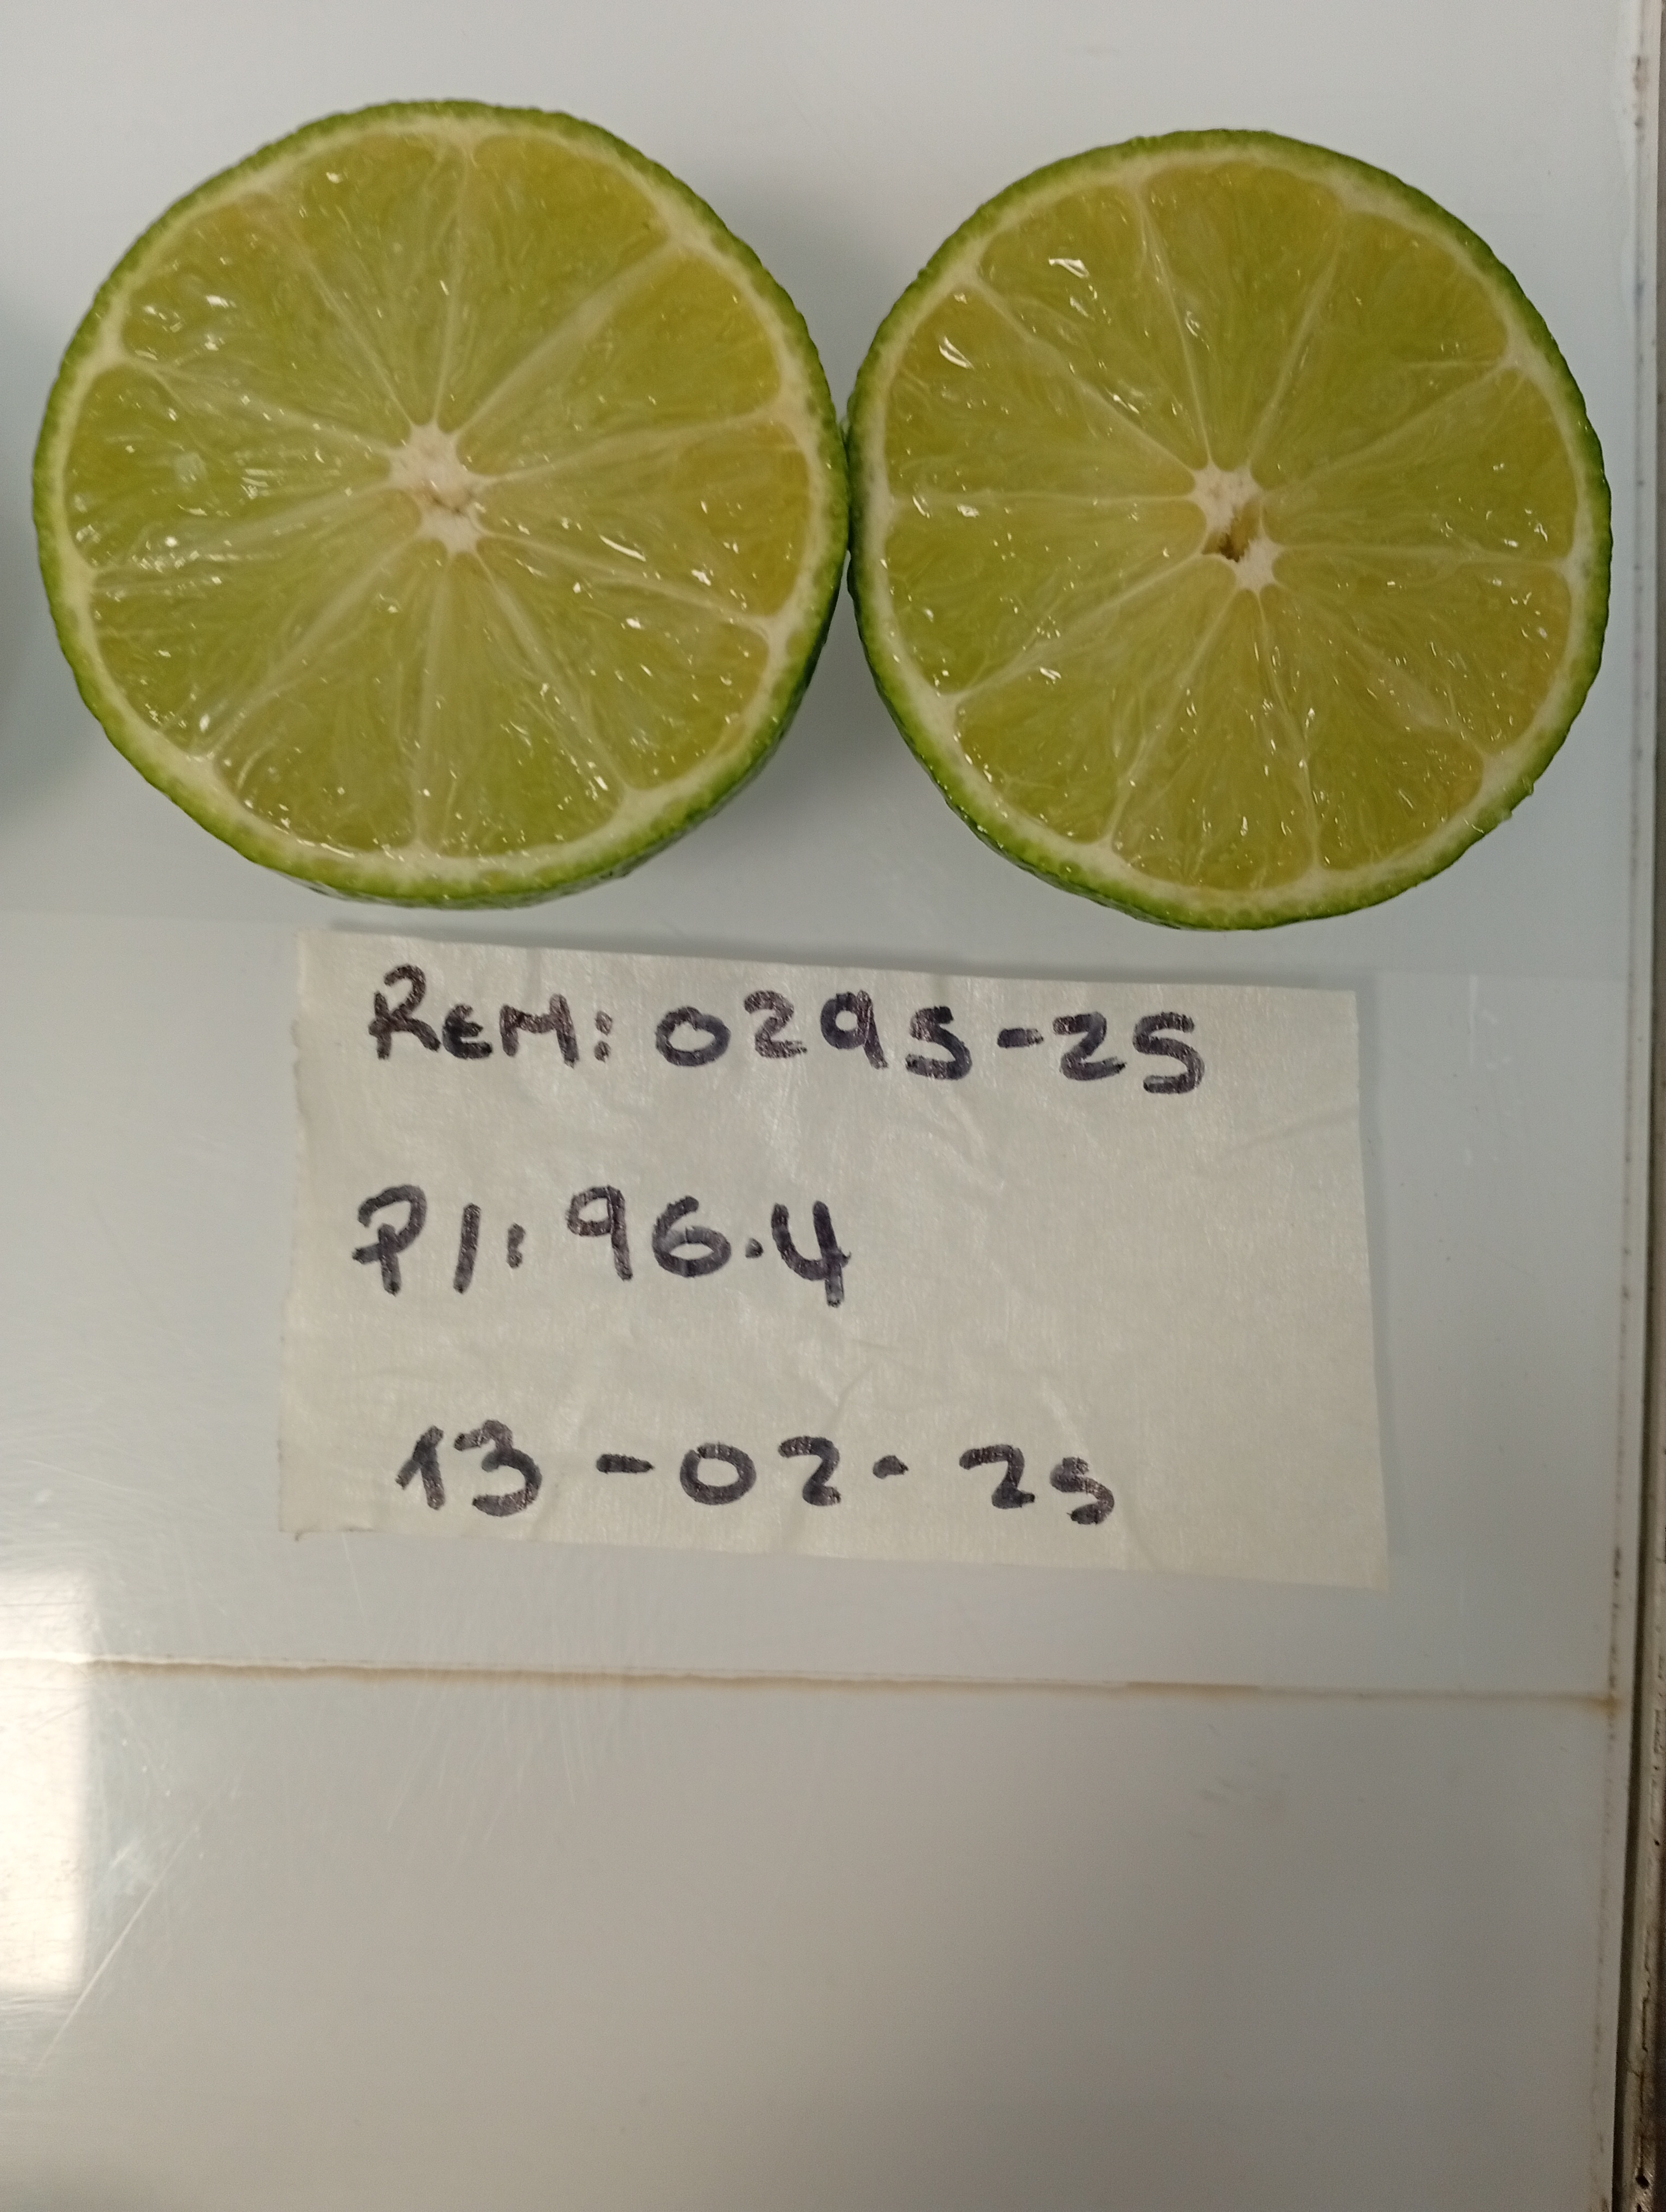 REM: 0295-25
P1: 96.4
13-02-25